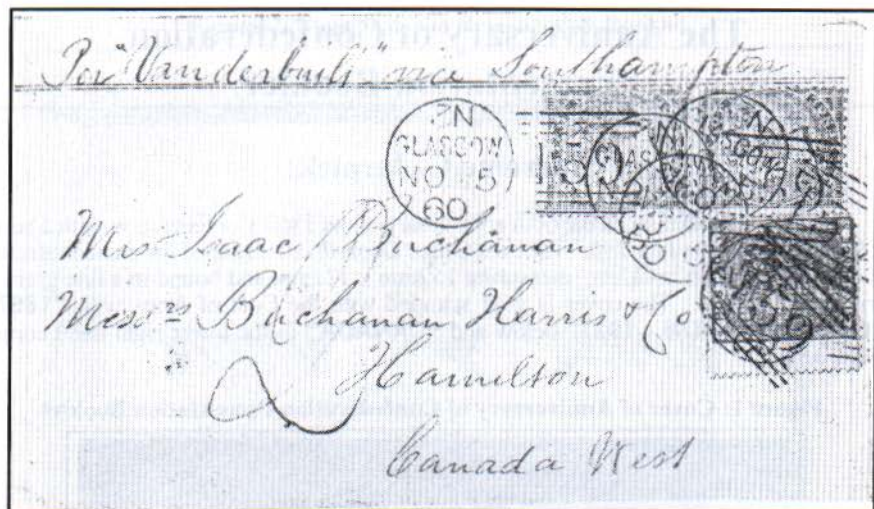 Per "Vanderbuilt" via Southampton
3N
GLASGOW
NO 5
60
Mrs Isaac Buchanan
Messrs Buchanan Harris & Co
Hamilton
Canada West